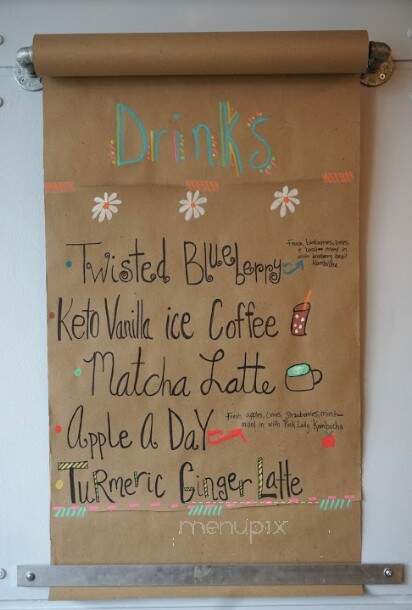 Drinks
Twisted Blueberry
Fresh blueberries, limes
Kombucha
Keto Vanilla ice Coffee
Matcha Latte
Apple A Day
Fresh apples, limes, strawberries, mint
mixed in with Pink Lady Kombucha
Turmeric Ginger Latte
menupix